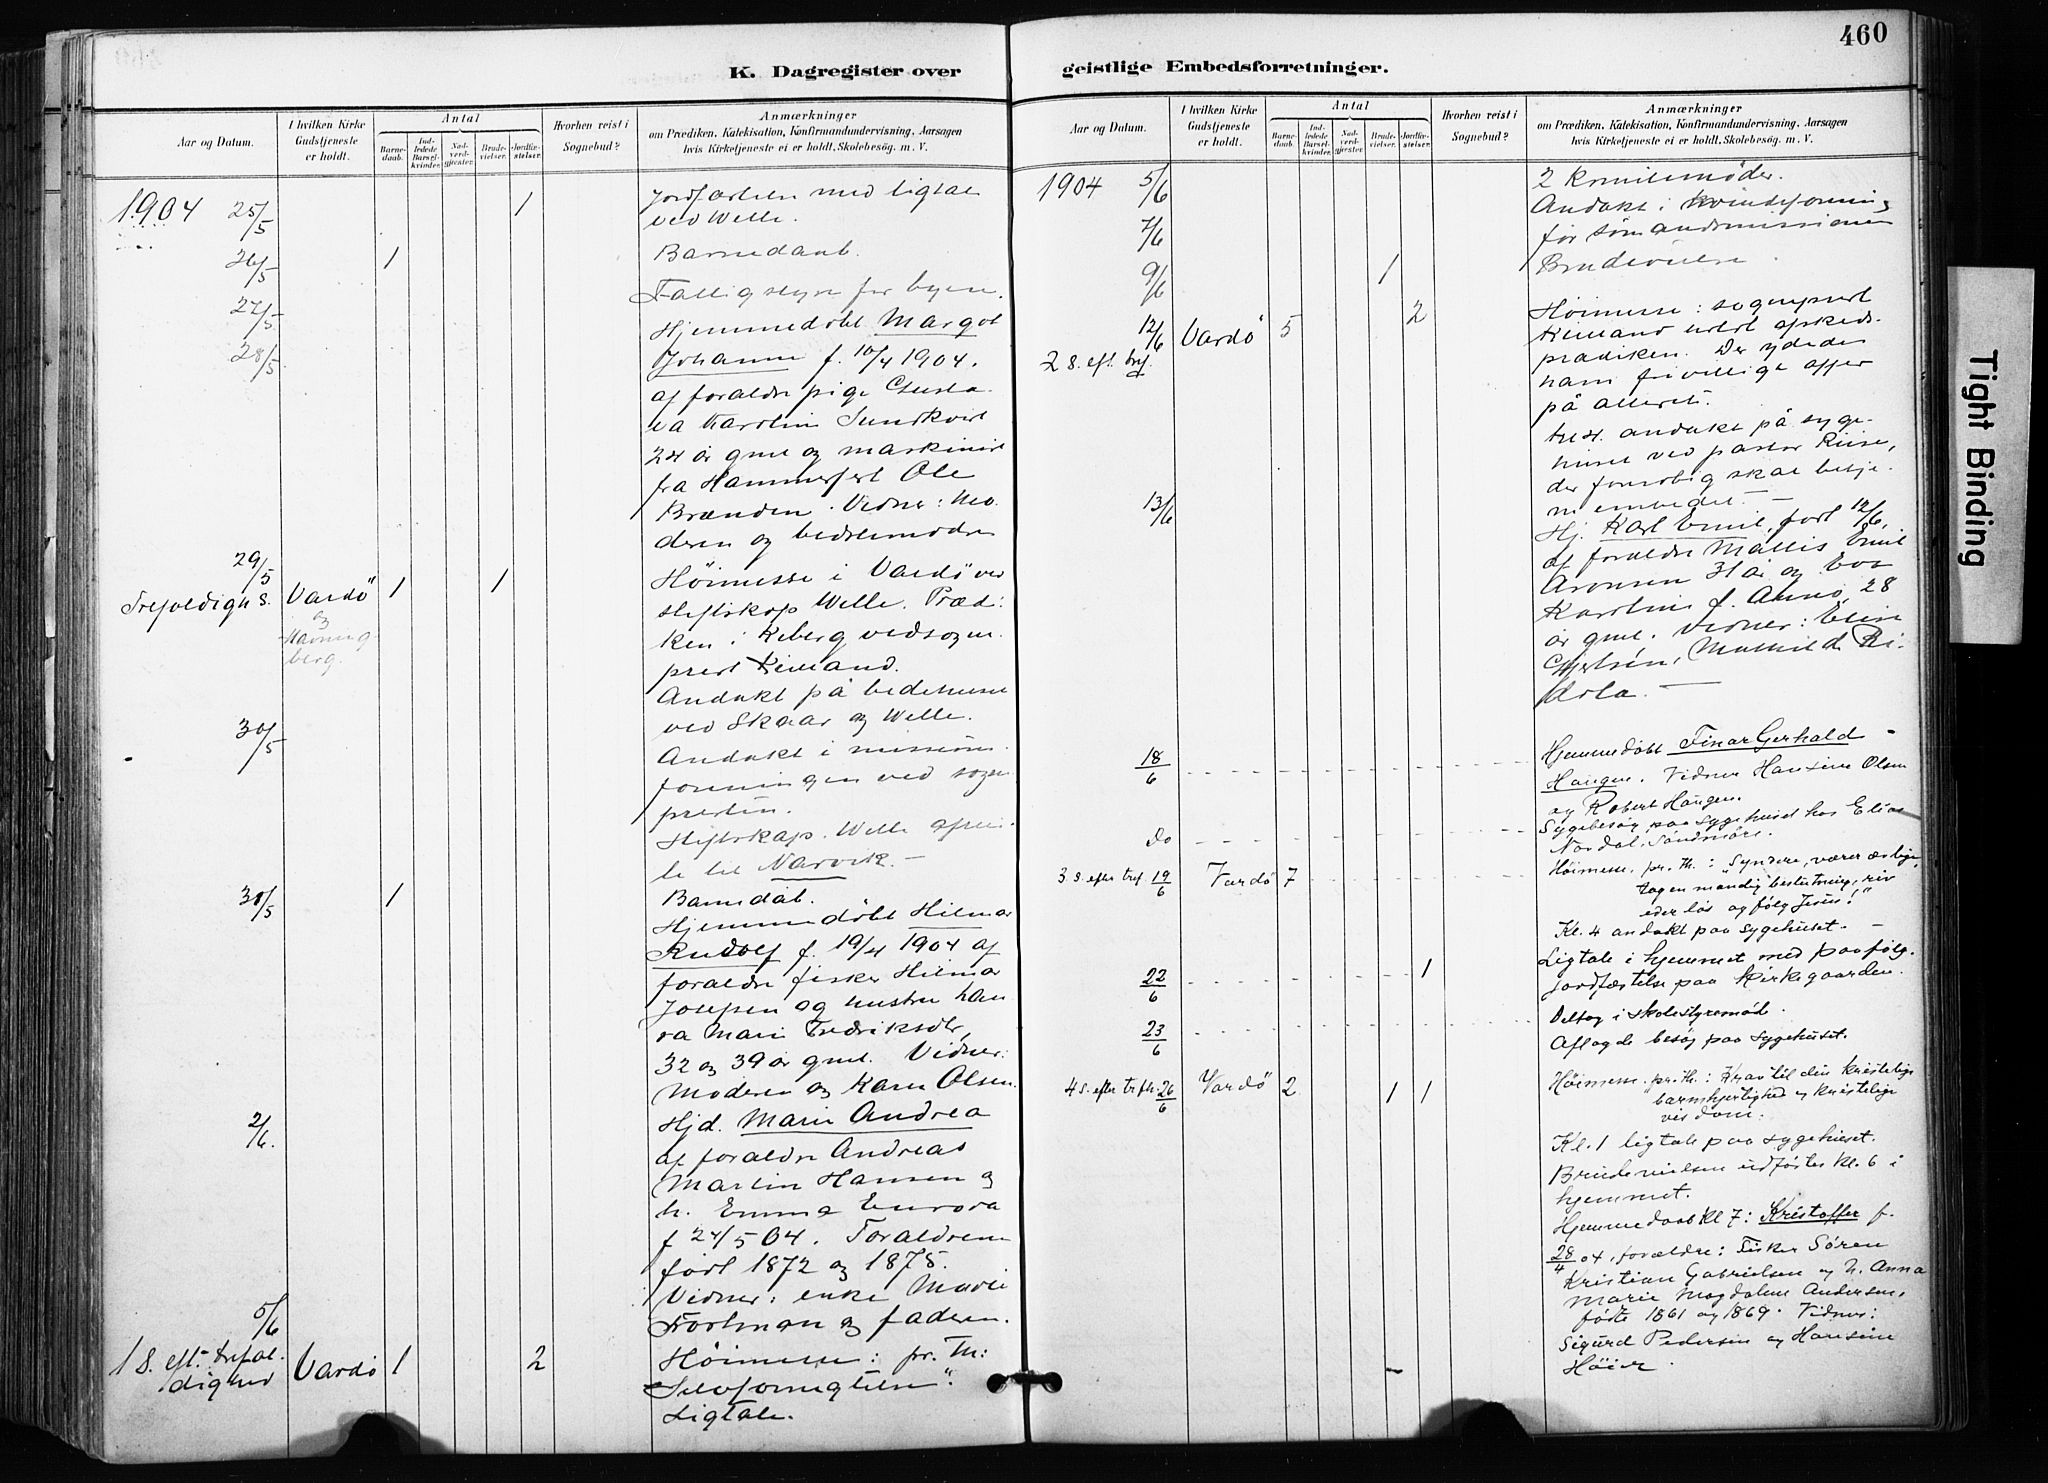 460
K. Dagregister over
Aar og Datum.
I hvilken Kirke
Gudstjeneste
er holdt.
Antal
Barne-
daab.
Ind-
ledede
Barsel-
kvinder.
Nad-
verd-
gjester.
Brude-
vielser.
Jordfæ-
stelser.
Hvorhen reist i
Sognebud?
Anmærkninger
om Prædiken, Katekisation, Konfirmandundervisning, Aarsagen
hvis Kirketjeneste ei er holdt, Skolebesøg. m. V.
1904 25/5
1
Jordfæstelse med ligtale
ved Welle.
26/5
1
Barnedaab.
27/5
Fattigstyre for byen.
28/5
Hjemmedöbt Margot
Johanne f. 10/4 1904.
af forældre pige Gusta-
va Karolin Sundkvist
24 år gml og maskinist
fra Hammerfest Ole
Brænden. Vidner: Mo-
deren og bedstemoderen
29/5
Trefoldigh. S.
Vardö
og
Havning-
berg.
1
1
Höimesse i Vardö ved
stiftskap Welle. Præd:
ken i Kiberg ved sogne-
prest Kieland.
Andakt på bedehuset
ved Skaar og Welle.
30/5
Andakt i missions-
foreningen ved sogne-
presten.
Stiftskap. Welle afrei-
te til Narvik. –
30/5
1
Barnedåb.
Hjemmedöbt Hilmar
Rudolf f. 19/4 1904 af
forældre fisker Hilmar
Josefsen og hustru Lau-
ra Marie Fredriksdtr,
32 og 39 år gml. Vidner:
Moderen og Karen Olsen.
2/6.
Hjd. Marie Andrea
af forældre Andreas
Martin Hansen og
h. Emma Eurora
f 24/5 04. Forældrene
født 1872 og 1875.
Vidner: enke Marie
Foshman og faderen.
5/6
1 S. eft. trefol-
dighed
Vardö
1
2
Höimesse: pr. Th:
Selvfornegtelse".
Ligtale.
geistlige Embedsforretninger.
Aar og Datum.
I hvilken Kirke
Gudstjeneste
er holdt.
Antal
Barne-
daab.
Ind-
ledede
Barsel-
kvinder.
Nad-
verd-
gjester.
Brude-
vielser.
Jordfæ-
stelser.
Hvorhen reist i
Sognebud?
Anmærkninger
om Prædiken, Katekisation, Konfirmandundervisning, Aarsagen
hvis Kirketjeneste ei er holdt, Skolebesög. m. V.
1904 5/6
2 komitemøder.
7/6
Andakt i kvindeforening
for sömandsmissionen
9/6
1
Brudevielse.
12/6
2 S. eft. tref.
Vardö
5
2
Höimesse: sogneprest
Kieland holdt afskeds-
prædiken. Der ydedes
ham frivillige offer
på alteret.
andakt på syge-
huset ved pastor Riise,
der foreløbig skal betje-
ne embedet –
13/6
Hj. Karl Emil, født 12/6,
af forældre Mattis Emil
Aronsen 31 år og
Karoline f. Anno, 28
år gml. Vidner: Elise
Mathilde Bi-
18/6
Hjemmedöbt Einar Gerhald
Haugen. Vidner Hansine Olsen
og Robert Haugen.
Do
Sygebesög paa sygehuset hos Elias
Nordal, Söndmöre.
3 S. efter tref. 19/6
Vardö
7
Höimesse. pr. Th.: "Syndere, værer ærlige,
tag en mandig beslutning, riv
eder lös og fölg Jesus!"
Kl. 4 andakt paa sygehuset. –
22/6
1
Ligtale i hjemmet med paafölg.
Jordfæstelse paa Kirkegaarden.
23/6
Deltog i skolestyremöde.
Aflagde besög paa sygehuset.
4 S. efter trefh. 26/6
Vardö
2
1
1
Höimesse. pr. Th.: Krav til den kristelige
barmhjertighed og kristelige
visdom.
Kl. 1 ligtale paa sygehuset.
Brudevielsen udförtes kl. 6 i
hjemmet.
Hjemmedaab kl 7: Kristoffer f.
28/4 04, forældre: Fisker Sören
Kristian Gabrielsen og h. Anna
Marie Magdalene Andersen,
födte 1861 og 1869. Vidner:
Sigurd Pedersen og Hansine
Höier.
Tight Binding